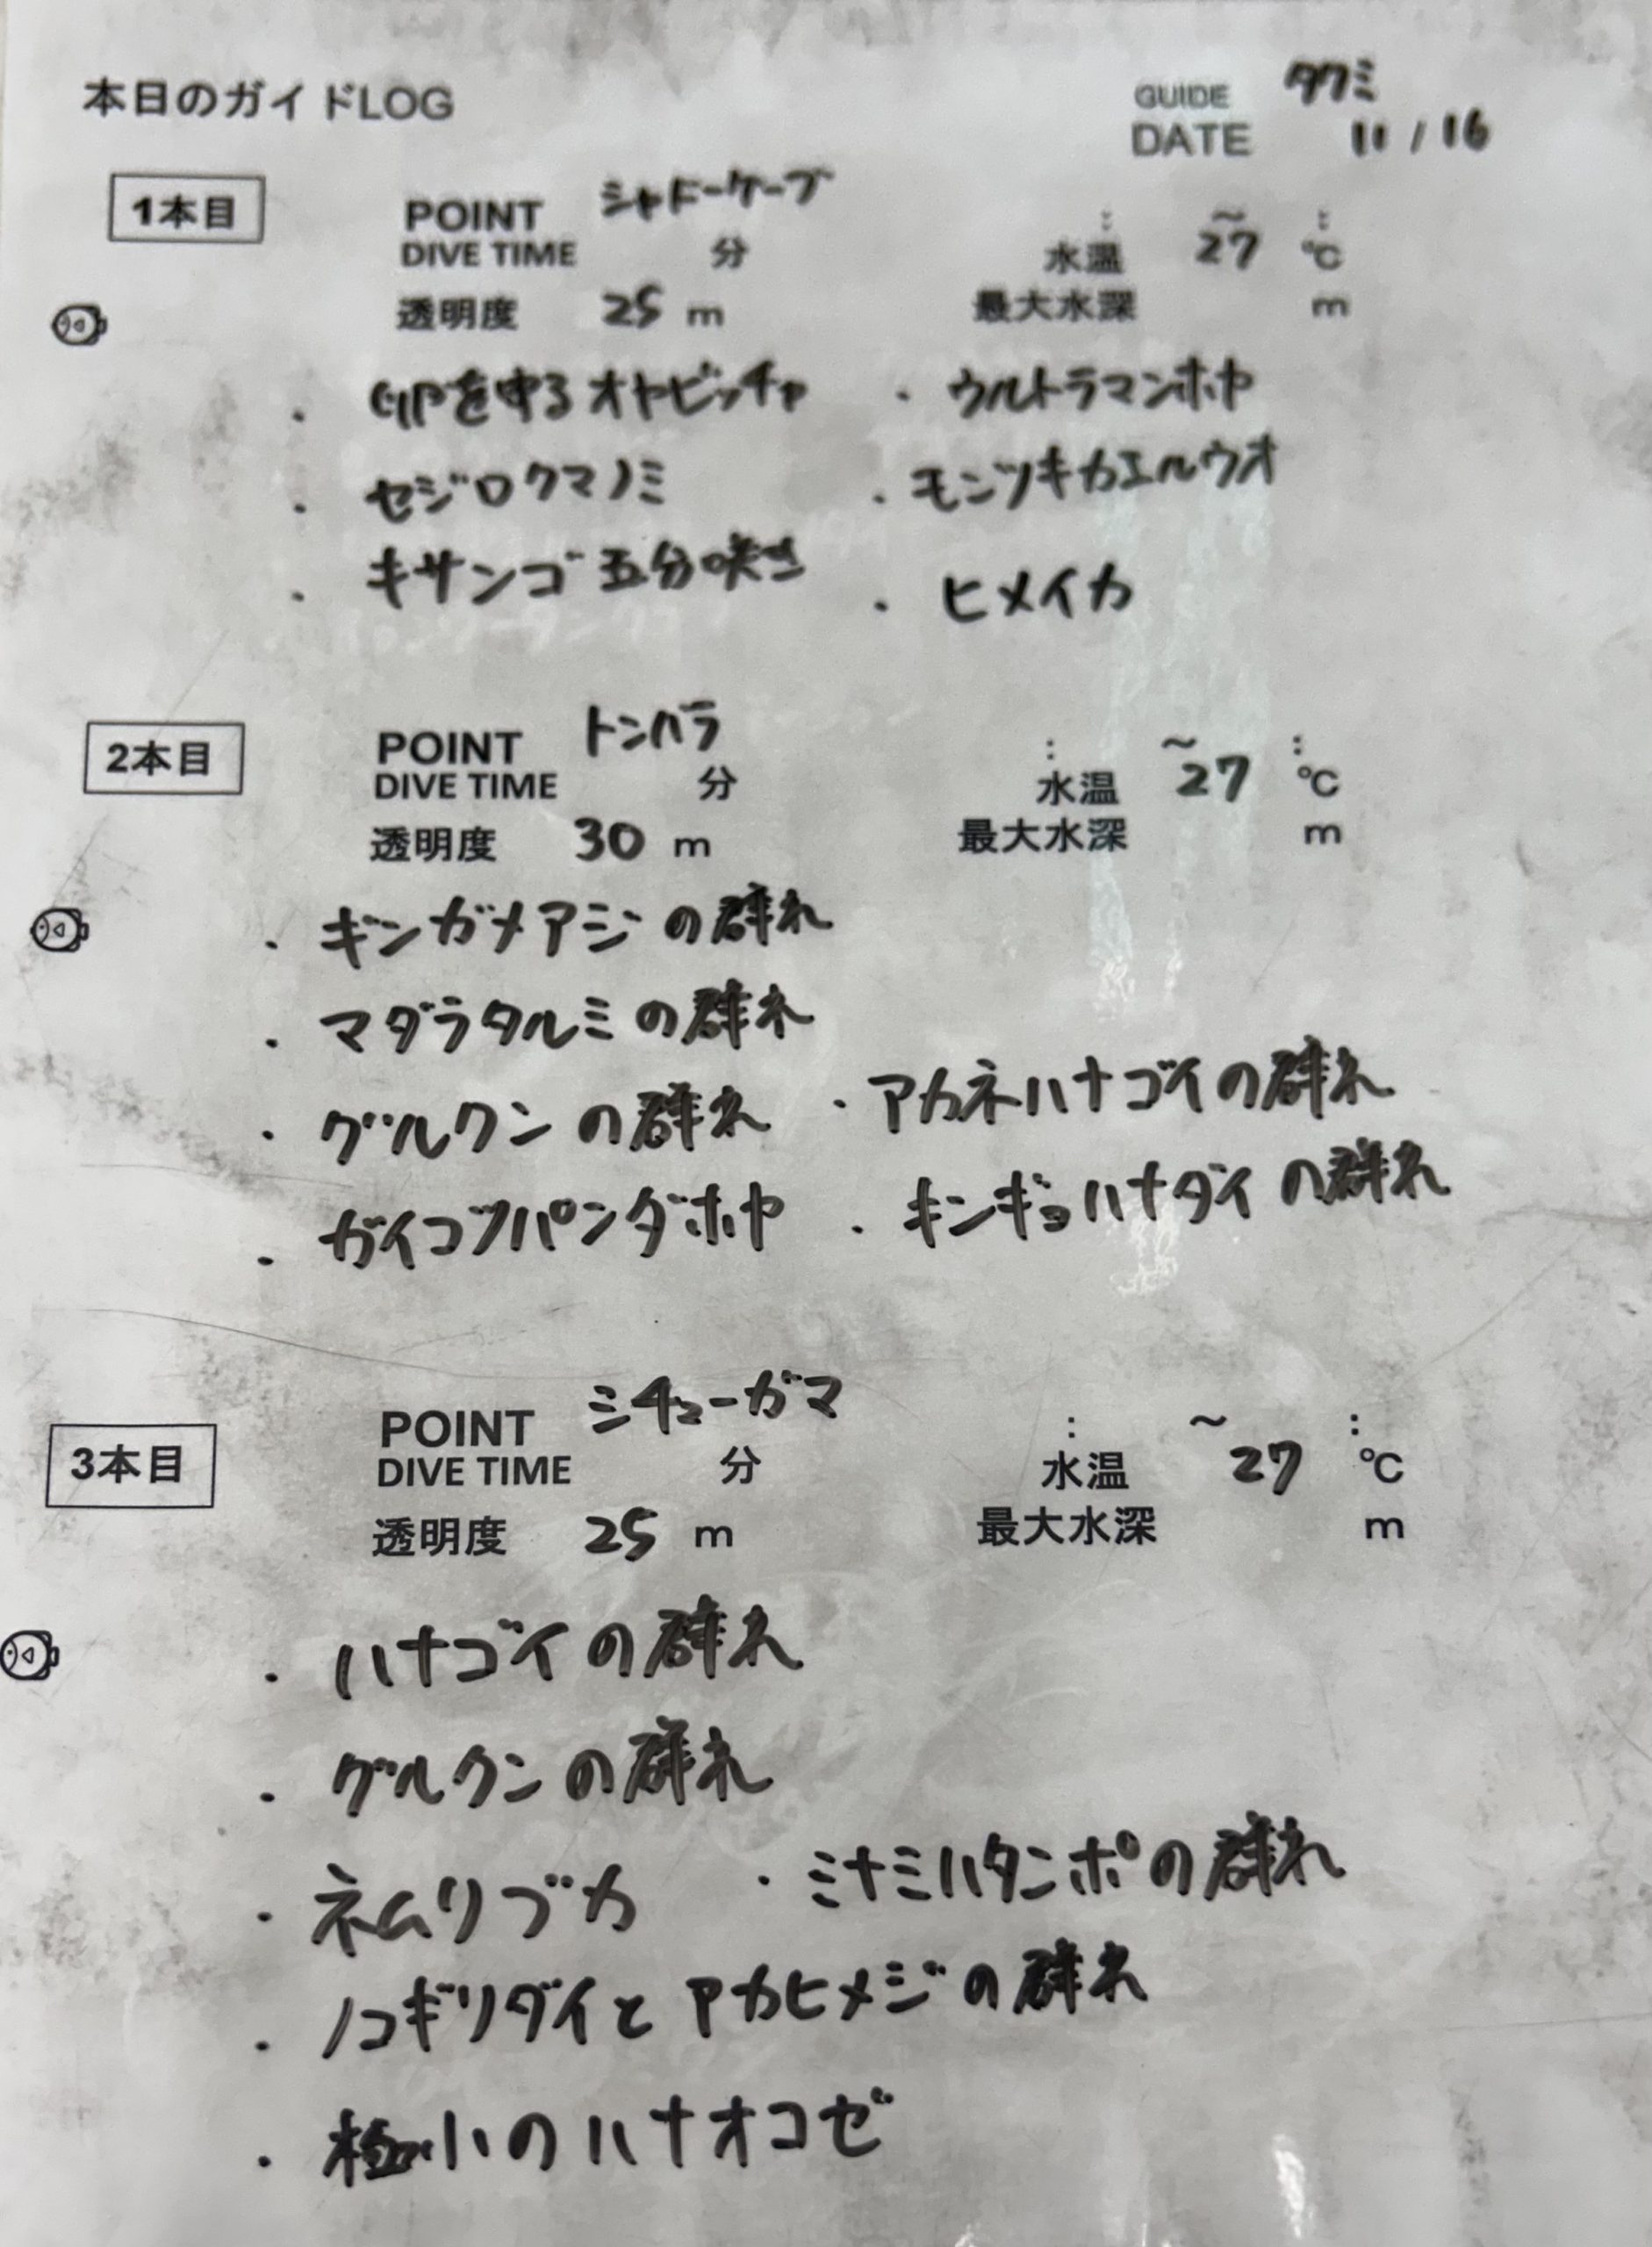 本日のガイドLOG
GUIDE タクミ
DATE 11 / 16
1本目
POINT シャドーケーブ : ~ :
DIVE TIME 分 水温 27 ℃
透明度 25 m 最大水深 m
・ 卵を守るオヤビッチャ ・ ウルトラマンホヤ
・ セジロクマノミ ・ モンツキカエルウオ
・ キサンゴ 五分咲き ・ ヒメイカ
2本目
POINT トンバラ : ~ :
DIVE TIME 分 水温 27 ℃
透明度 30 m 最大水深 m
・ ギンガメアジの群れ
・ マダラタルミの群れ
・ グルクンの群れ ・ アカネハナゴイの群れ
・ ガイコツパンダホヤ ・ キンギョハナダイの群れ
3本目
POINT シチューガマ : ~ :
DIVE TIME 分 水温 27 ℃
透明度 25 m 最大水深 m
・ ハナゴイの群れ
・ グルクンの群れ
・ ネムリブカ ・ ミナミハタンポの群れ
・ ノコギリダイと アカヒメジの群れ
・ 極小のハナオコゼ